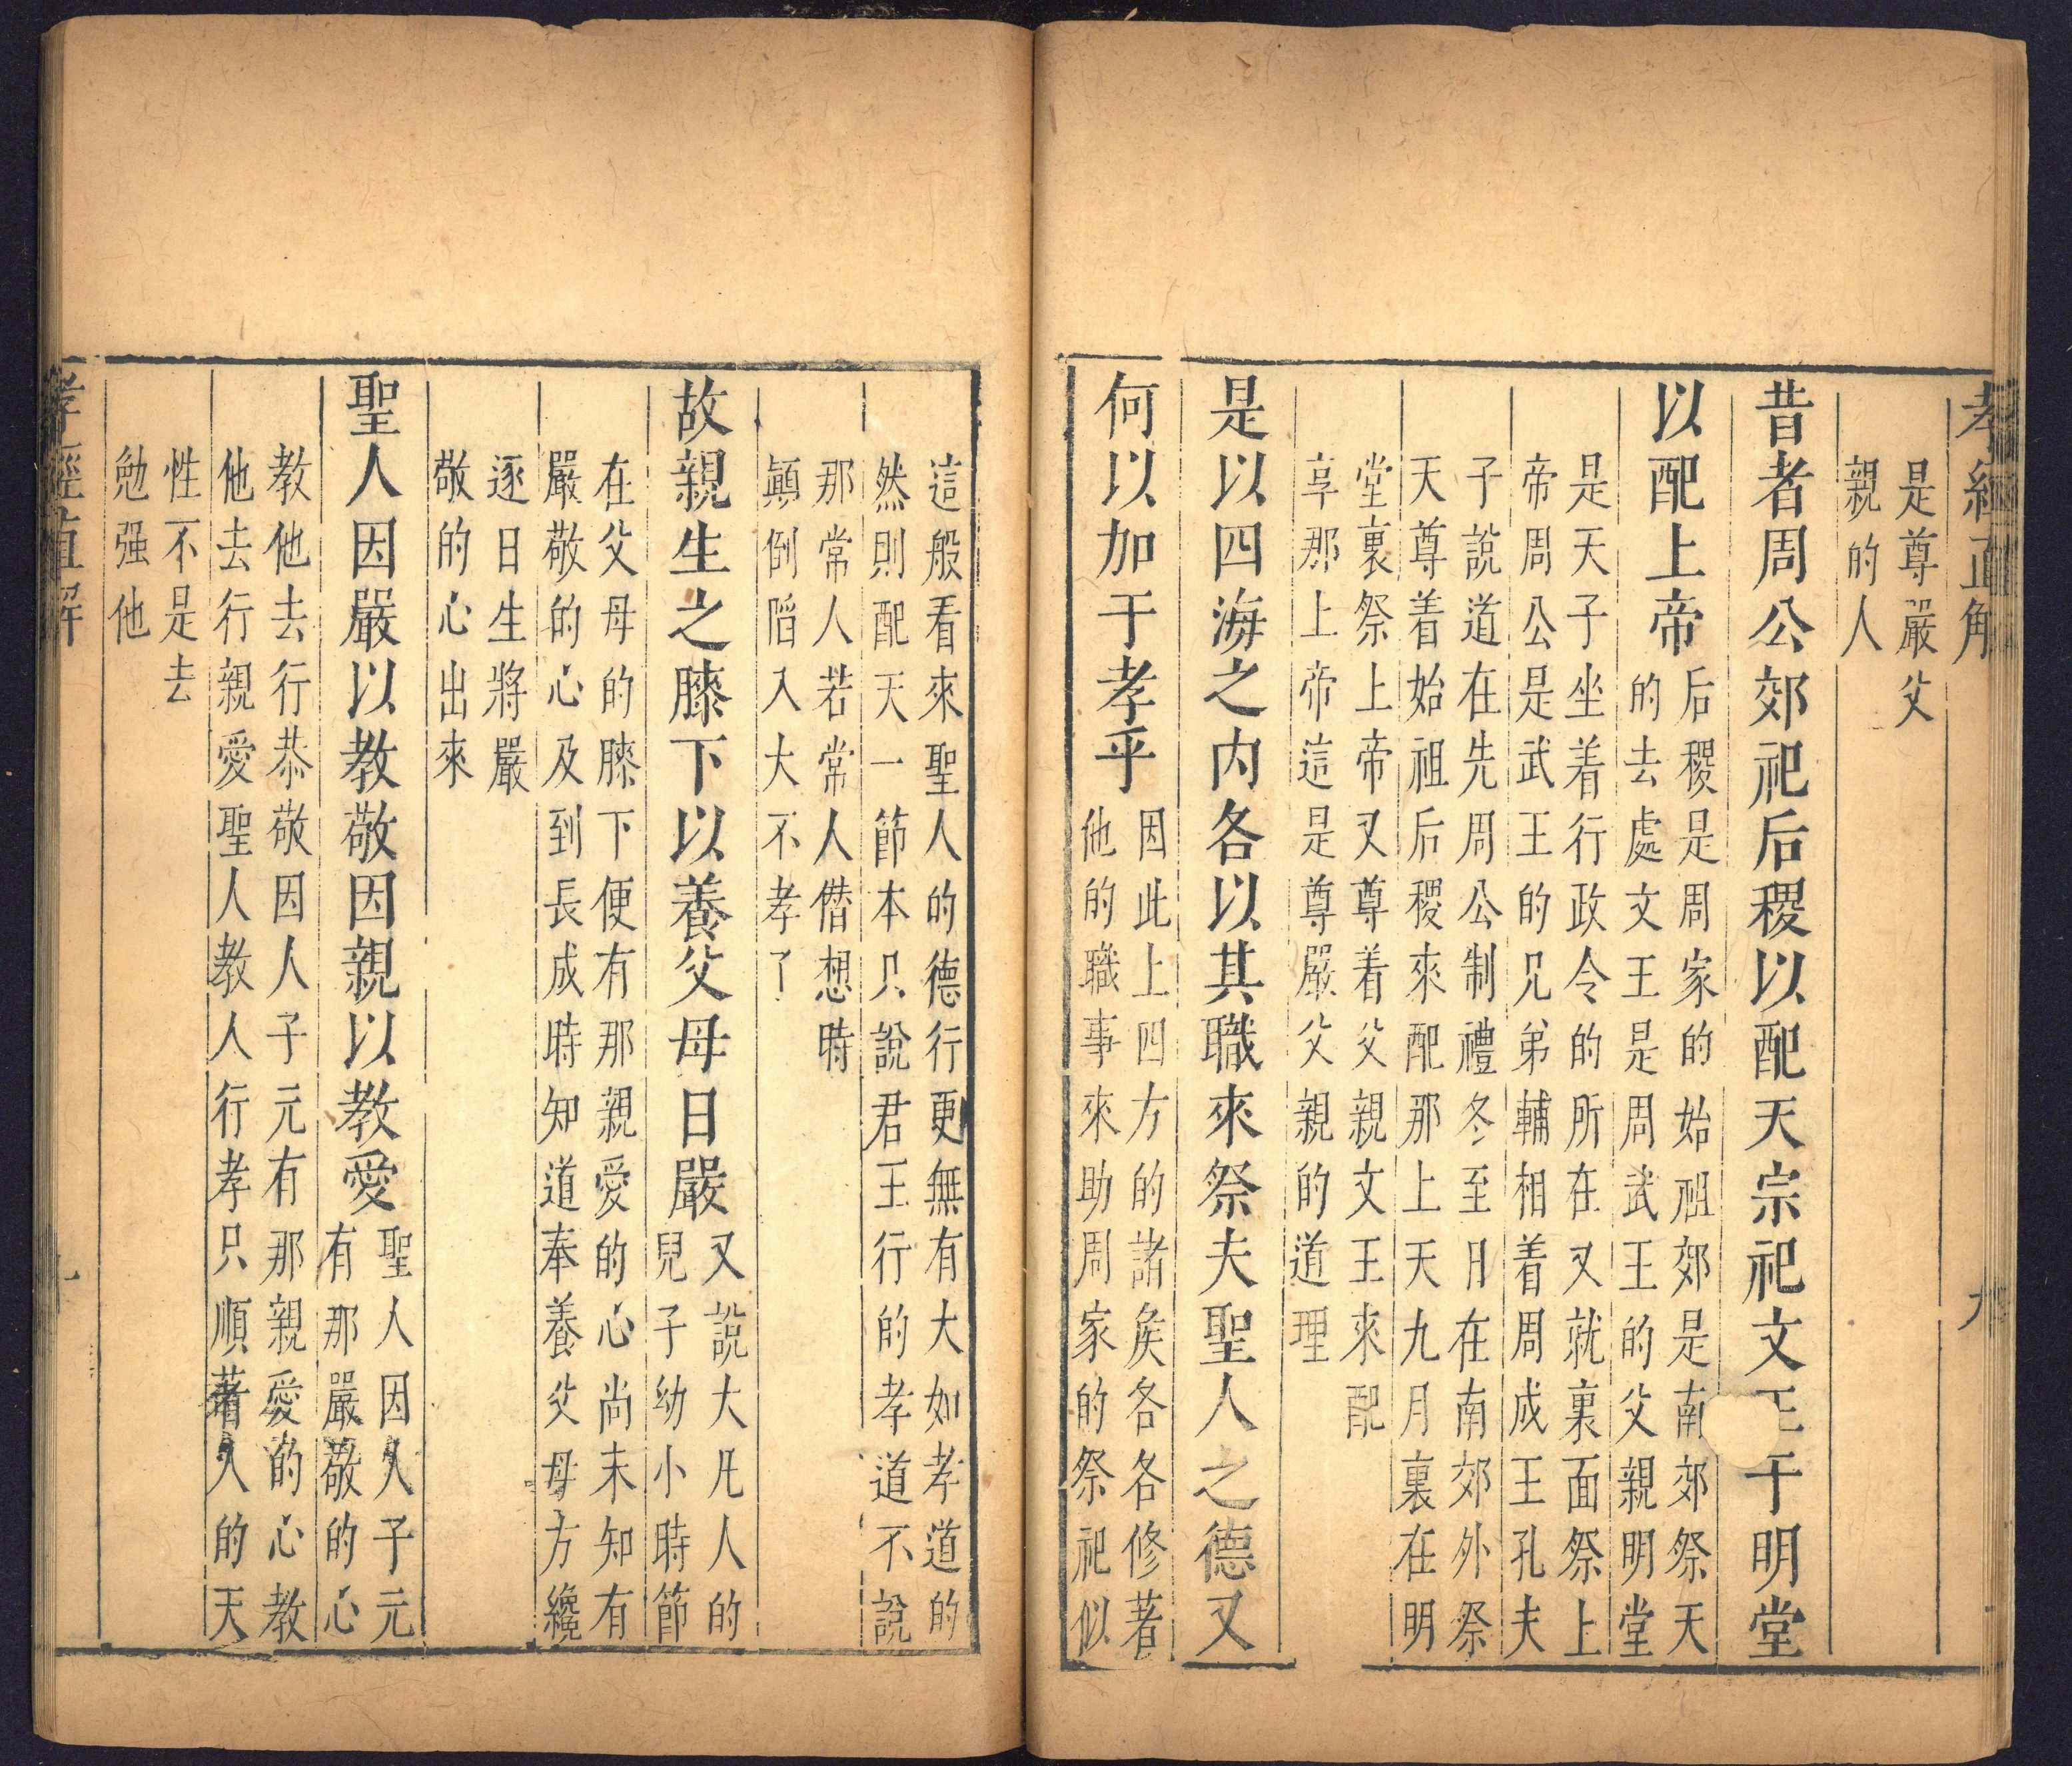 孝經直解 九
是尊嚴父
親的人
昔者周公郊祀后稷以配天宗祀文王于明堂
以配上帝
后稷是周家的始祖郊是南郊祭天
的去處文王是周武王的父親明堂
是天子坐着行政令的所在又就裏面祭上
帝周公是武王的兄弟輔相着周成王孔夫
子說道在先周公制禮冬至日在南郊外祭
天尊着始祖后稷來配那上天九月裏在明
堂裏祭上帝又尊着父親文王來配
享那上帝這是尊嚴父親的道理
是以四海之内各以其職來祭夫聖人之德又
何以加于孝乎
因此上四方的諸矦各各修著
他的職事來助周家的祭祀似
這般看來聖人的德行更無有大如孝道的
然則配天一節本只說君王行的孝道不說
那常人若常人僣想時
顚倒陷入大不孝了
故親生之膝下以養父母日嚴
又說大凡人的
兒子幼小時節
在父母的膝下便有那親愛的心尚未知有
嚴敬的心及到長成時知道奉養父母方纔
逐日生將嚴
敬的心出來
聖人因嚴以教敬因親以教愛
聖人因人子元
有那嚴敬的心
教他去行恭敬因人子元有那親愛的心教
他去行親愛聖人教人行孝只順著人的天
性不是去
勉强他
孝經直解